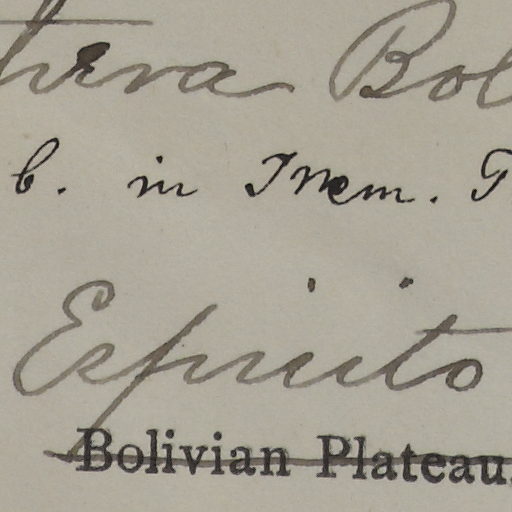 Bol
b. in Mem. T
Espirito
Bolivian Plateau.